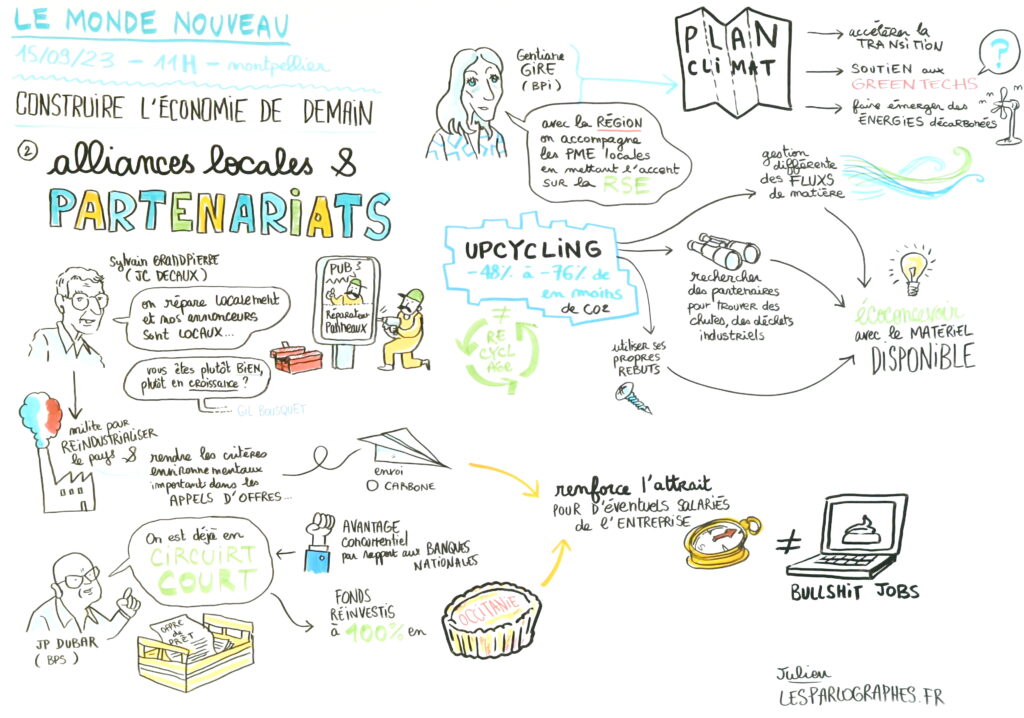 LE MONDE NOUVEAU
15/09/23 - 11H - montpellier
CONSTRUIRE L'ÉCONOMIE DE DEMAIN
② alliances locales &
PARTENARIATS
Sylvain GRANDPIERRE
(JC DECAUX)
on répare localement
et nos annonceurs
sont LOCAUX...
PUB
Réparateur
Panneaux
vous êtes plutôt BIEN,
plutôt en croissance ?
GIL BOUSQUET
milite pour
RÉINDUSTRIALISER
le pays &
rendre les critères
environnementaux
important dans les
APPELS D'OFFRES...
envoi
0 CARBONE
On est déjà en
CIRCUIRT
COURT
JP DUBAR
(BPS)
OFFRE
de
PRÊT
AVANTAGE
concurrentiel
par rapport aux BANQUES
NATIONALES
FONDS
RÉINVESTIS
à 100% en
OCCITANIE
Gentiane
GIRE
(BPi)
avec la RÉGION
on accompagne
les PME locales
en mettant l'accent
SUR la RSE
PLAN
CLIMAT
accélérer la
TRANSITION
SOUTIEN aux
GREENTECHS
faire émerger des
ÉNERGIES décarbonées
?
UPCYCLING
-48% à -76% de
en moins
de CO2
≠
RE
CYCL
AGE
gestion
différente
des FLUXS
de matière
rechercher
des partenaires
pour trouver des
chutes, des déchets
industriels
utiliser ses
PROPRES
REBUTS
écoconcevoir
avec le MATÉRIEL
DISPONIBLE
renforce l'attrait
POUR D'ÉVENTUELS SALARIÉS
de l'ENTREPRISE
≠
BULLSHIT JOBS
Julien
LESPARLOGRAPHES.FR